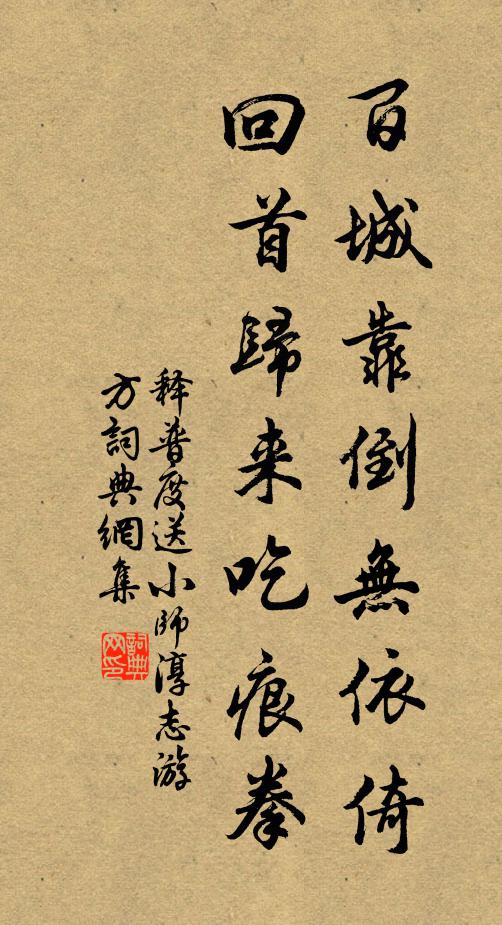 百城靠倒無依倚
回首歸来吃痕拳
释普度送小師淳志游
方詞典網集
詞典网印